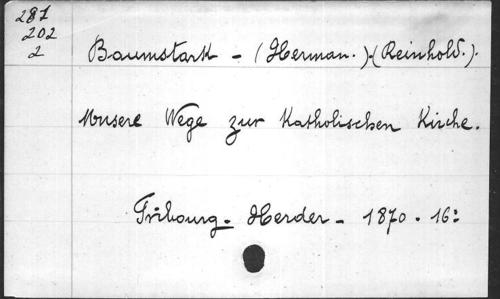 281
202
2
Baumstark - (Herman.).(Reinhold.).
Unsere Wege zur Katholischen Kirche.
Fribourg - Herder - 1870 - 16: